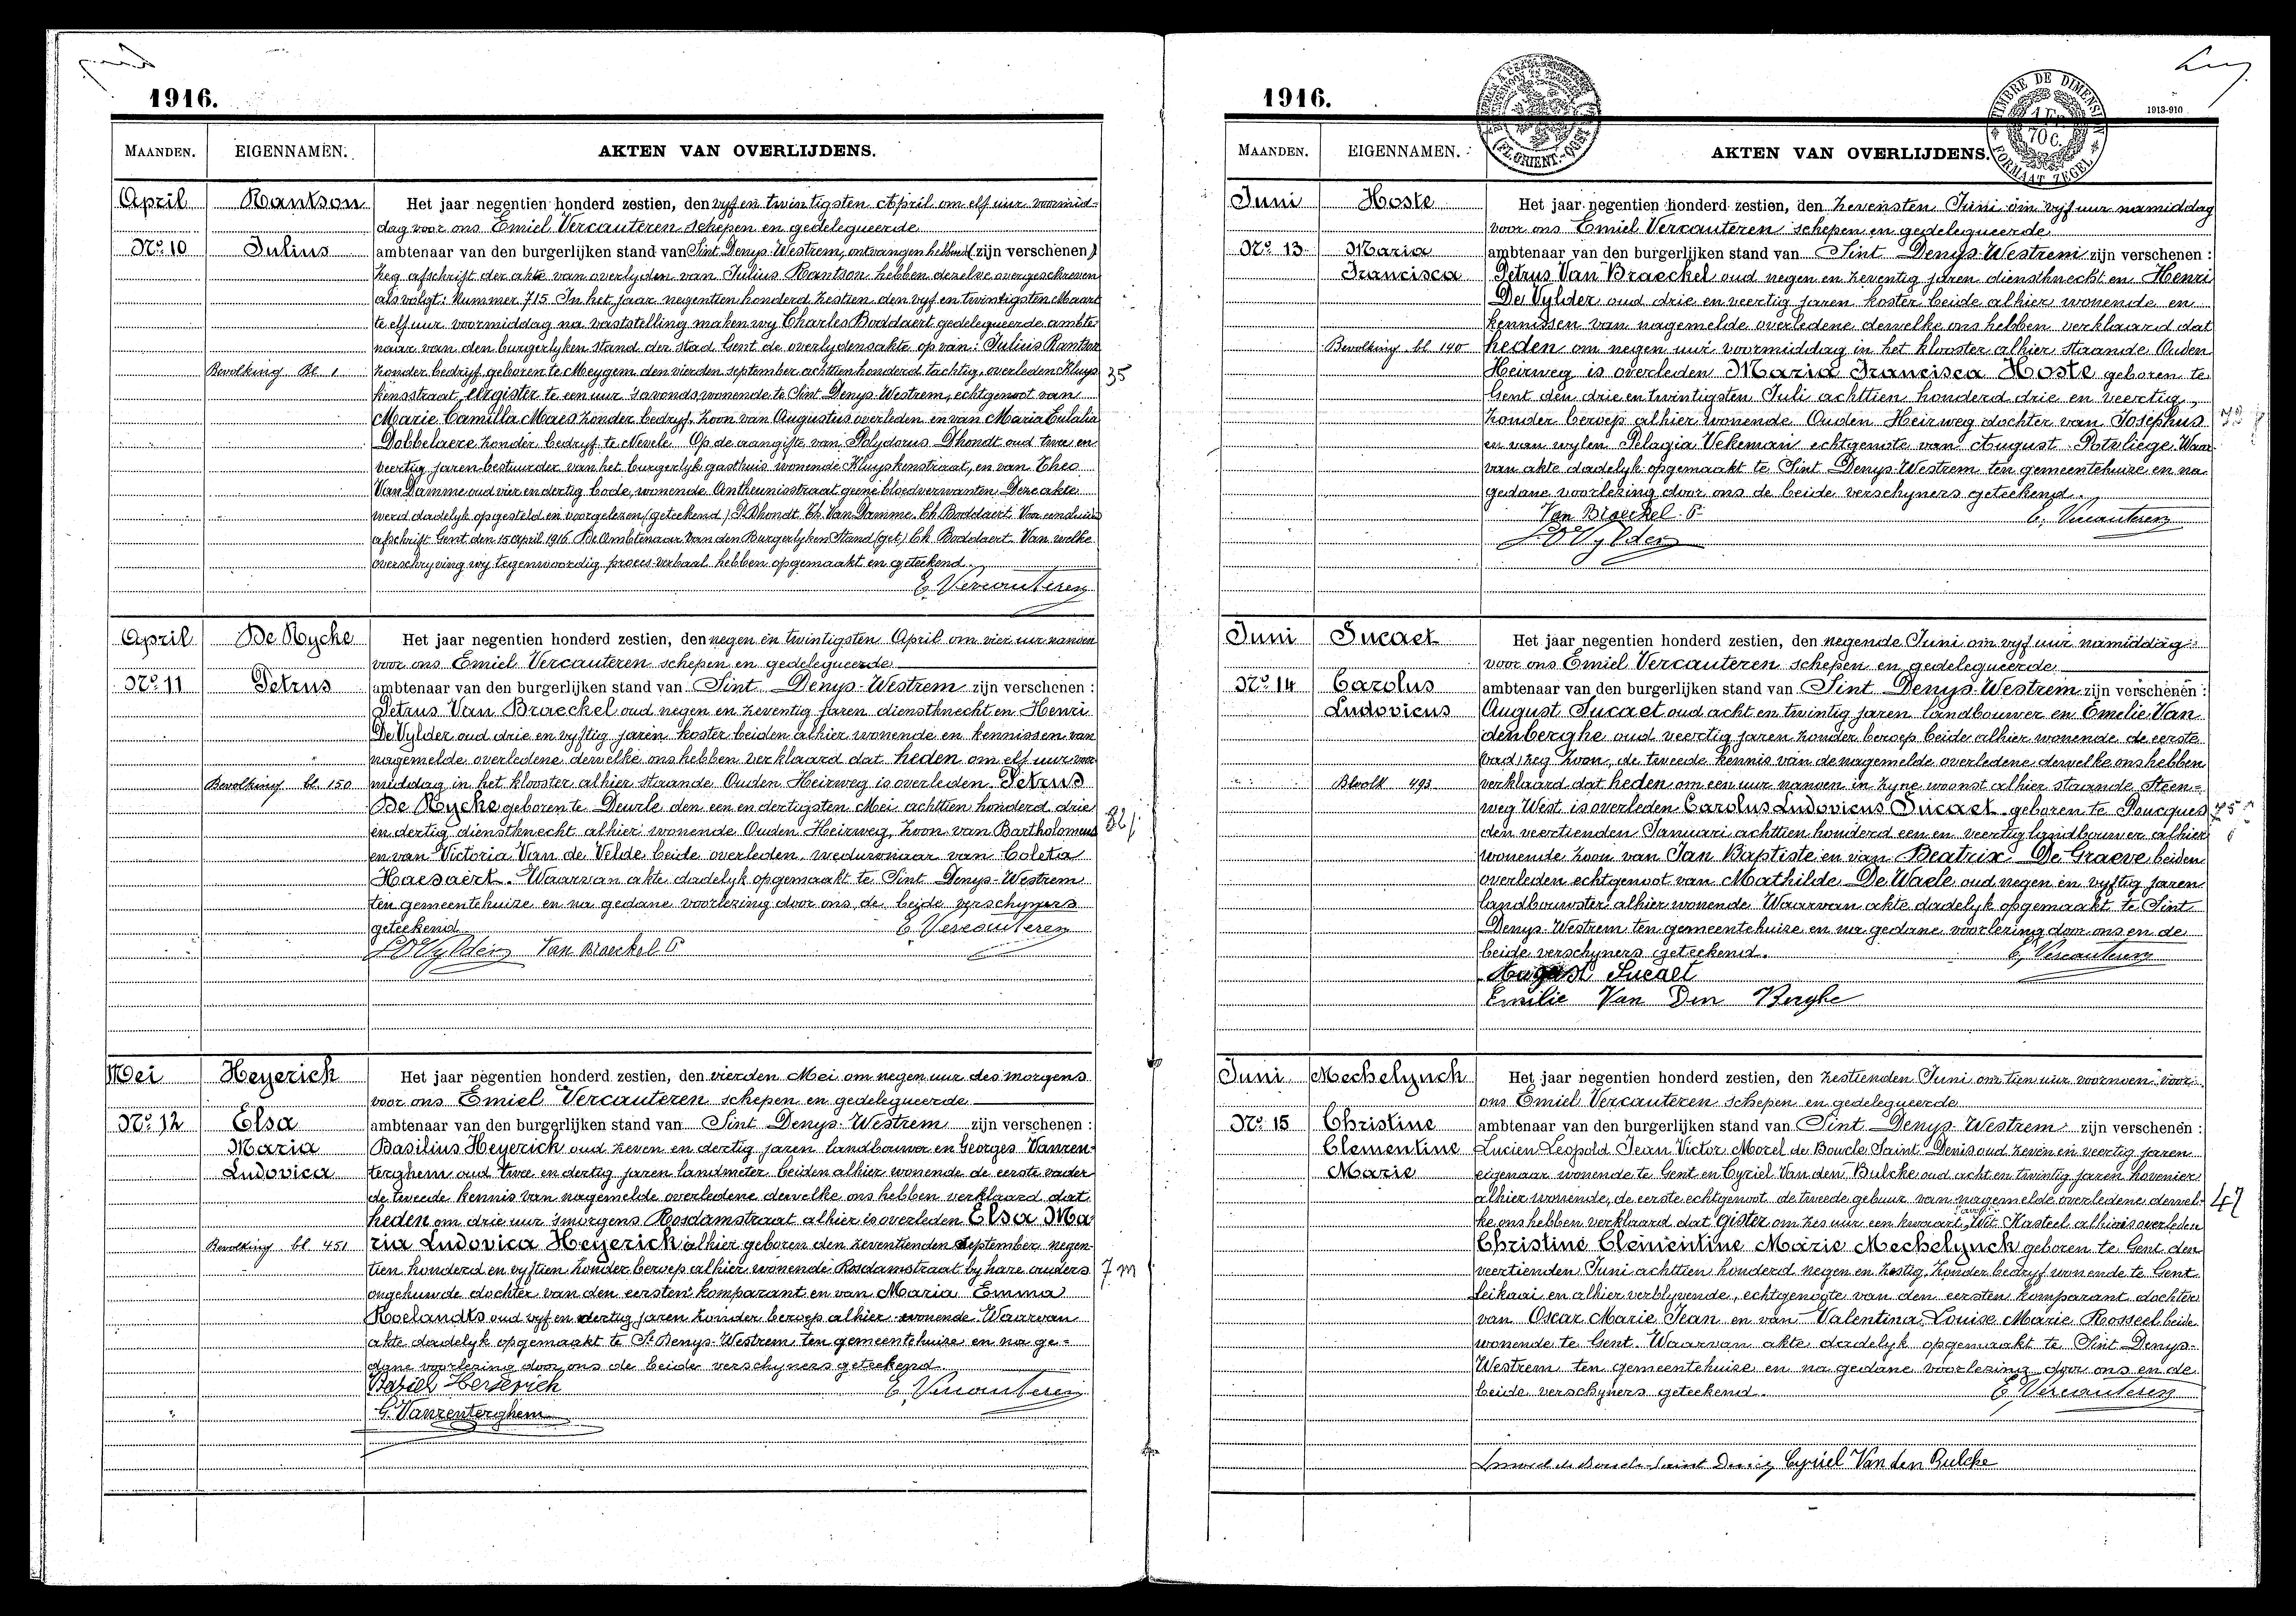 1916.
MAANDEN. EIGENNAMEN. AKTEN VAN OVERLIJDENS.
April Rantson Het jaar negentien honderd zestien, den vyf en twintigsten April om elf uur voormid-
dag voor ons Emiel Vercauteren schepen en gedelegueerde
No. 10 Julius ambtenaar van den burgerlijken stand van Sint Denys-Westrem, ontvangen hebbend (zijn verschenen)
zeg afschrift der akte van overlyden van Julius Rantson hebben dezelve overgeschreven
als volgt: Nummer 715 In het jaar negentien honderd zestien den vyf en twintigsten Maart
te elf uur voormiddag na vaststelling maken wy Charles Boddaert gedelegueerde ambte-
naar van den burgerlyken stand der stad Gent de overlydensakte op van: Julius Rantson
Bevolking Bl. 1 zonder bedryf geboren te Meygem den vierden september achttien honderd tachtig, overleden Kluys 35
kensstraat, eergister te een uur 's avonds, wonende te Sint Denys-Westrem, echtgenoot van
Marie Camilla Maes zonder bedryf, zoon van Augustus overleden en van Maria Eulalia
Dobbelaere zonder bedryf te Nevele Op de aangifte van Polydorus Dhondt oud twee en
veertig jaren bestuurder van het burgerlyk gasthuis wonende Kluyskenstraat, en van Theo
Van Damme oud vier en dertig bode, wonende Antheunisstraat geene bloedverwanten Deze akte
werd dadelyk opgesteld en voorgelezen (geteekend) P. Dhondt Th. Van Damme. Ch. Boddaert. Voor eensluidend
afschrift Gent den 15 April 1916 De Ambtenaar van den Burgerlyken Stand (get.) Ch. Boddaert. Van welke
overschryving wy tegenwoordig proces-verbaal hebben opgemaakt en geteekend.
E. Vercauteren
April De Rycke Het jaar negentien honderd zestien, den negen en twintigsten April om vier uur nanoen
voor ons Emiel Vercauteren schepen en gedelegueerde
No. 11 Petrus ambtenaar van den burgerlijken stand van Sint Denys-Westrem zijn verschenen:
Petrus Van Braeckel oud negen en zeventig jaren dienstknecht en Henri
De Vylder oud drie en vyftig jaren koster beiden alhier wonende en kennissen van
nagemelde overledene dewelke ons hebben verklaard dat heden om elf uur voor
Bevolking bl. 150 middag in het klooster alhier staande Ouden Heirweg is overleden Petrus
De Rycke geboren te Deurle den een en dertigsten Mei achttien honderd drie
en dertig dienstknecht alhier wonende Ouden Heirweg, zoon van Bartholomeus 82 j
en van Victoria Van de Velde beide overleden weduwnaar van Coleta
Haesaert. Waarvan akte dadelyk opgemaakt te Sint Denys-Westrem
ten gemeentehuize en na gedane voorlezing door ons de beide verschyners
geteekend. E. Vercauteren
H De Vylder Van Braeckel P
Mei Heyerich Het jaar negentien honderd zestien, den vierden Mei om negen uur des morgens
voor ons Emiel Vercauteren schepen en gedelegueerde
No. 12 Elsa ambtenaar van den burgerlijken stand van Sint Denys-Westrem zijn verschenen:
Maria Basilius Heyerich oud zeven en dertig jaren landbouwer en Georges Vanren-
Ludovica terghem oud twee en dertig jaren landmeter beiden alhier wonende de eerste vader
de tweede kennis van nagemelde overledene dewelke ons hebben verklaard dat
heden om drie uur 's morgens Rosdamstraat alhier is overleden Elsa Ma
Bevolking bl 451 ria Ludovica Heyerich alhier geboren den zeventienden September negen-
tien honderd en vyftien zonder beroep alhier wonende Rosdamstraat by hare ouders 7 m
ongehuwde dochter van den eersten komparant en van Maria Emma
Roelandts oud vyf en dertig jaren zonder beroep alhier wonende. Waarvan
akte dadelyk opgemaakt te St. Denys-Westrem ten gemeentehuize en na ge-
dane voorlezing door ons de beide verschyners geteekend
Baziel Heyerich E. Vercauteren
G. Vanrenterghem
1916. 1913-910
(FL. ORIENT.-OOST
TIMBRE DE DIMENSION 1 Fr. 70 C. FORMAAT ZEGEL
MAANDEN. EIGENNAMEN. AKTEN VAN OVERLIJDENS.
Juni Hoste Het jaar negentien honderd zestien, den zevensten Juni om vyf uur namiddag
voor ons Emiel Vercauteren schepen en gedelegueerde
No. 13 Maria ambtenaar van den burgerlijken stand van Sint Denys-Westrem zijn verschenen:
Francisca Petrus Van Braeckel oud negen en zeventig jaren dienstknecht en Henri
De Vylder oud drie en veertig jaren koster beide alhier wonende en
kennissen van nagemelde overledene dewelke ons hebben verklaard dat
Bevolking bl 140 heden om negen uur voormiddag in het klooster alhier staande Ouden
Heirweg is overleden Maria Francisca Hoste geboren te
Gent den drie en twintigsten Juli achttien honderd drie en veertig,
zonder beroep alhier wonende Ouden Heirweg dochter van Josephus 72
en van wylen Pelagia Vekeman echtgenote van August Potvliege Waar-
van akte dadelyk opgemaakt te Sint Denys-Westrem ten gemeentehuize en na
gedane voorlezing door ons de beide verschyners geteekend.
Van Braeckel. P. E. Vercauteren
H De Vylder
Juni Sucaet Het jaar negentien honderd zestien, den negende Juni om vyf uur namiddag
voor ons Emiel Vercauteren schepen en gedelegueerde
No. 14 Carolus ambtenaar van den burgerlijken stand van Sint Denys-Westrem zijn verschenen:
Ludovicus August Sucaet oud acht en twintig jaren landbouwer en Emelie Van
denberghe oud veertig jaren zonder beroep beide alhier wonende de eerste
zeg zoon, de tweede kennis van de nagemelde overledene dewelke ons hebben
Bevolk 493 verklaard dat heden om een uur nanoen in zyne woonst alhier staande Steen-
weg West is overleden Carolus Ludovicus Sucaet geboren te Poucques 75
den veertienden Januari achttien honderd een en veertig landbouwer alhier
wonende zoon van Jan Baptiste en van Beatrix De Graeve beiden
overleden echtgenoot van Mathilde De Waele oud negen en vyftig jaren
landbouwster alhier wonende Waarvan akte dadelyk opgemaakt te Sint
Denys-Westrem ten gemeentehuize en na gedane voorlezing door ons en de
beide verschyners geteekend. E. Vercauteren
August Sucaet
Emilie Van Den Berghe
Juni Mechelynck Het jaar negentien honderd zestien, den zestienden Juni om tien uur voornoen voor
ons Emiel Vercauteren schepen en gedelegueerde
No. 15 Christine ambtenaar van den burgerlijken stand van Sint Denys-Westrem zijn verschenen:
Clementine Lucien Leopold Jean Victor Morel de Boucle Saint Denis oud zeven en veertig jaren
Marie eigenaar wonende te Gent en Cyriel Van den Bulcke oud acht en twintig jaren hovenier
alhier wonende, de eerste echtgenoot de tweede gebuur van nagemelde overledene dewel- 47
ke ons hebben verklaard dat gister om zes uur een kwaart Wit Kasteel alhier is overleden
Christine Clementine Marie Mechelynck geboren te Gent den
veertienden Juni achttien honderd negen en zestig, zonder bedryf wonende te Gent
Leikaai en alhier verblyvende, echtgenote van den eersten komparant dochter
van Oscar Marie Jean en van Valentina Louise Marie Rosseel beide
wonende te Gent. Waarvan akte dadelyk opgemaakt te Sint Denys-
Westrem ten gemeentehuize en na gedane voorlezing door ons en de
beide verschyners geteekend. E. Vercauteren
L morel de Boucle-Saint Denis Cyriel Van den Bulcke